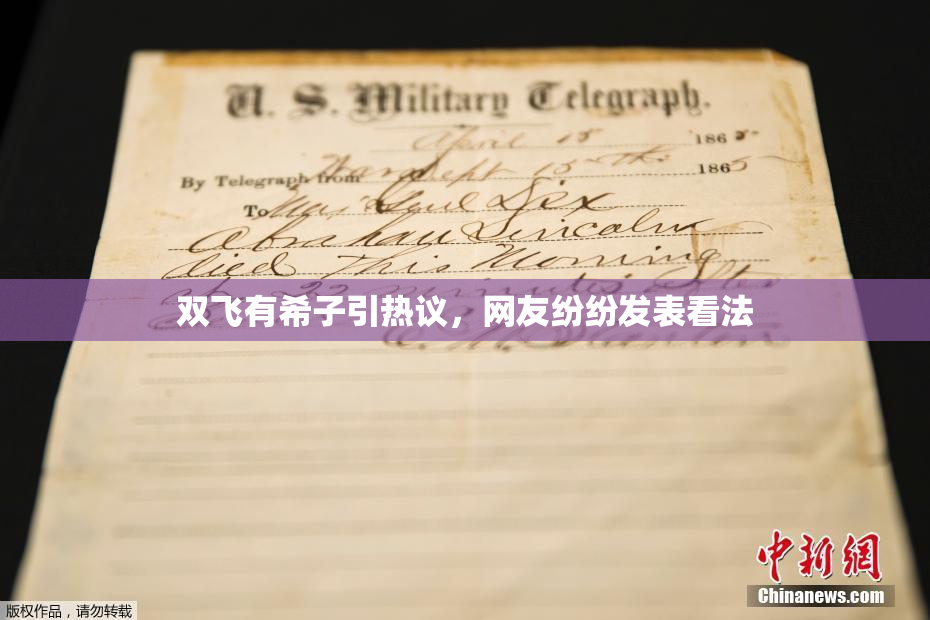 U. S. Military Telegraph.
April 15 1865
By Telegraph from War Dept 15th 1865
To Maj Genl Dix
Abraham Lincoln
died This Morning
at 22 minutes after
双飞有希子引热议，网友纷纷发表看法
E. M. Stanton
中新网
Chinanews.com
版权作品，请勿转载